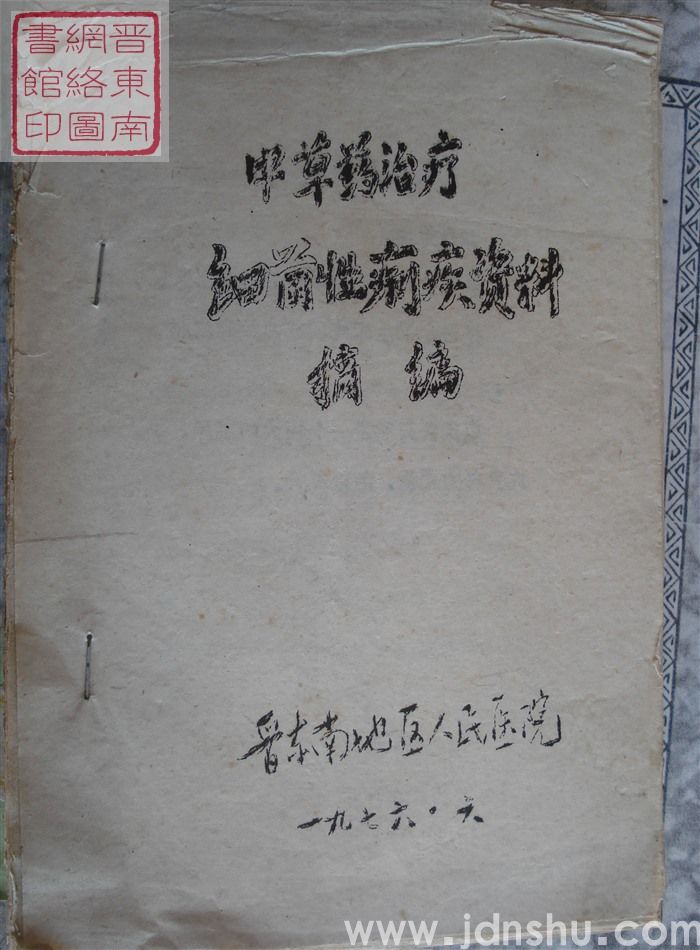 晋東南
網絡圖
書館印
中草药治疗
细菌性痢疾资料
摘编
晋东南地区人民医院
一九七六·六
www.jdnshu.com